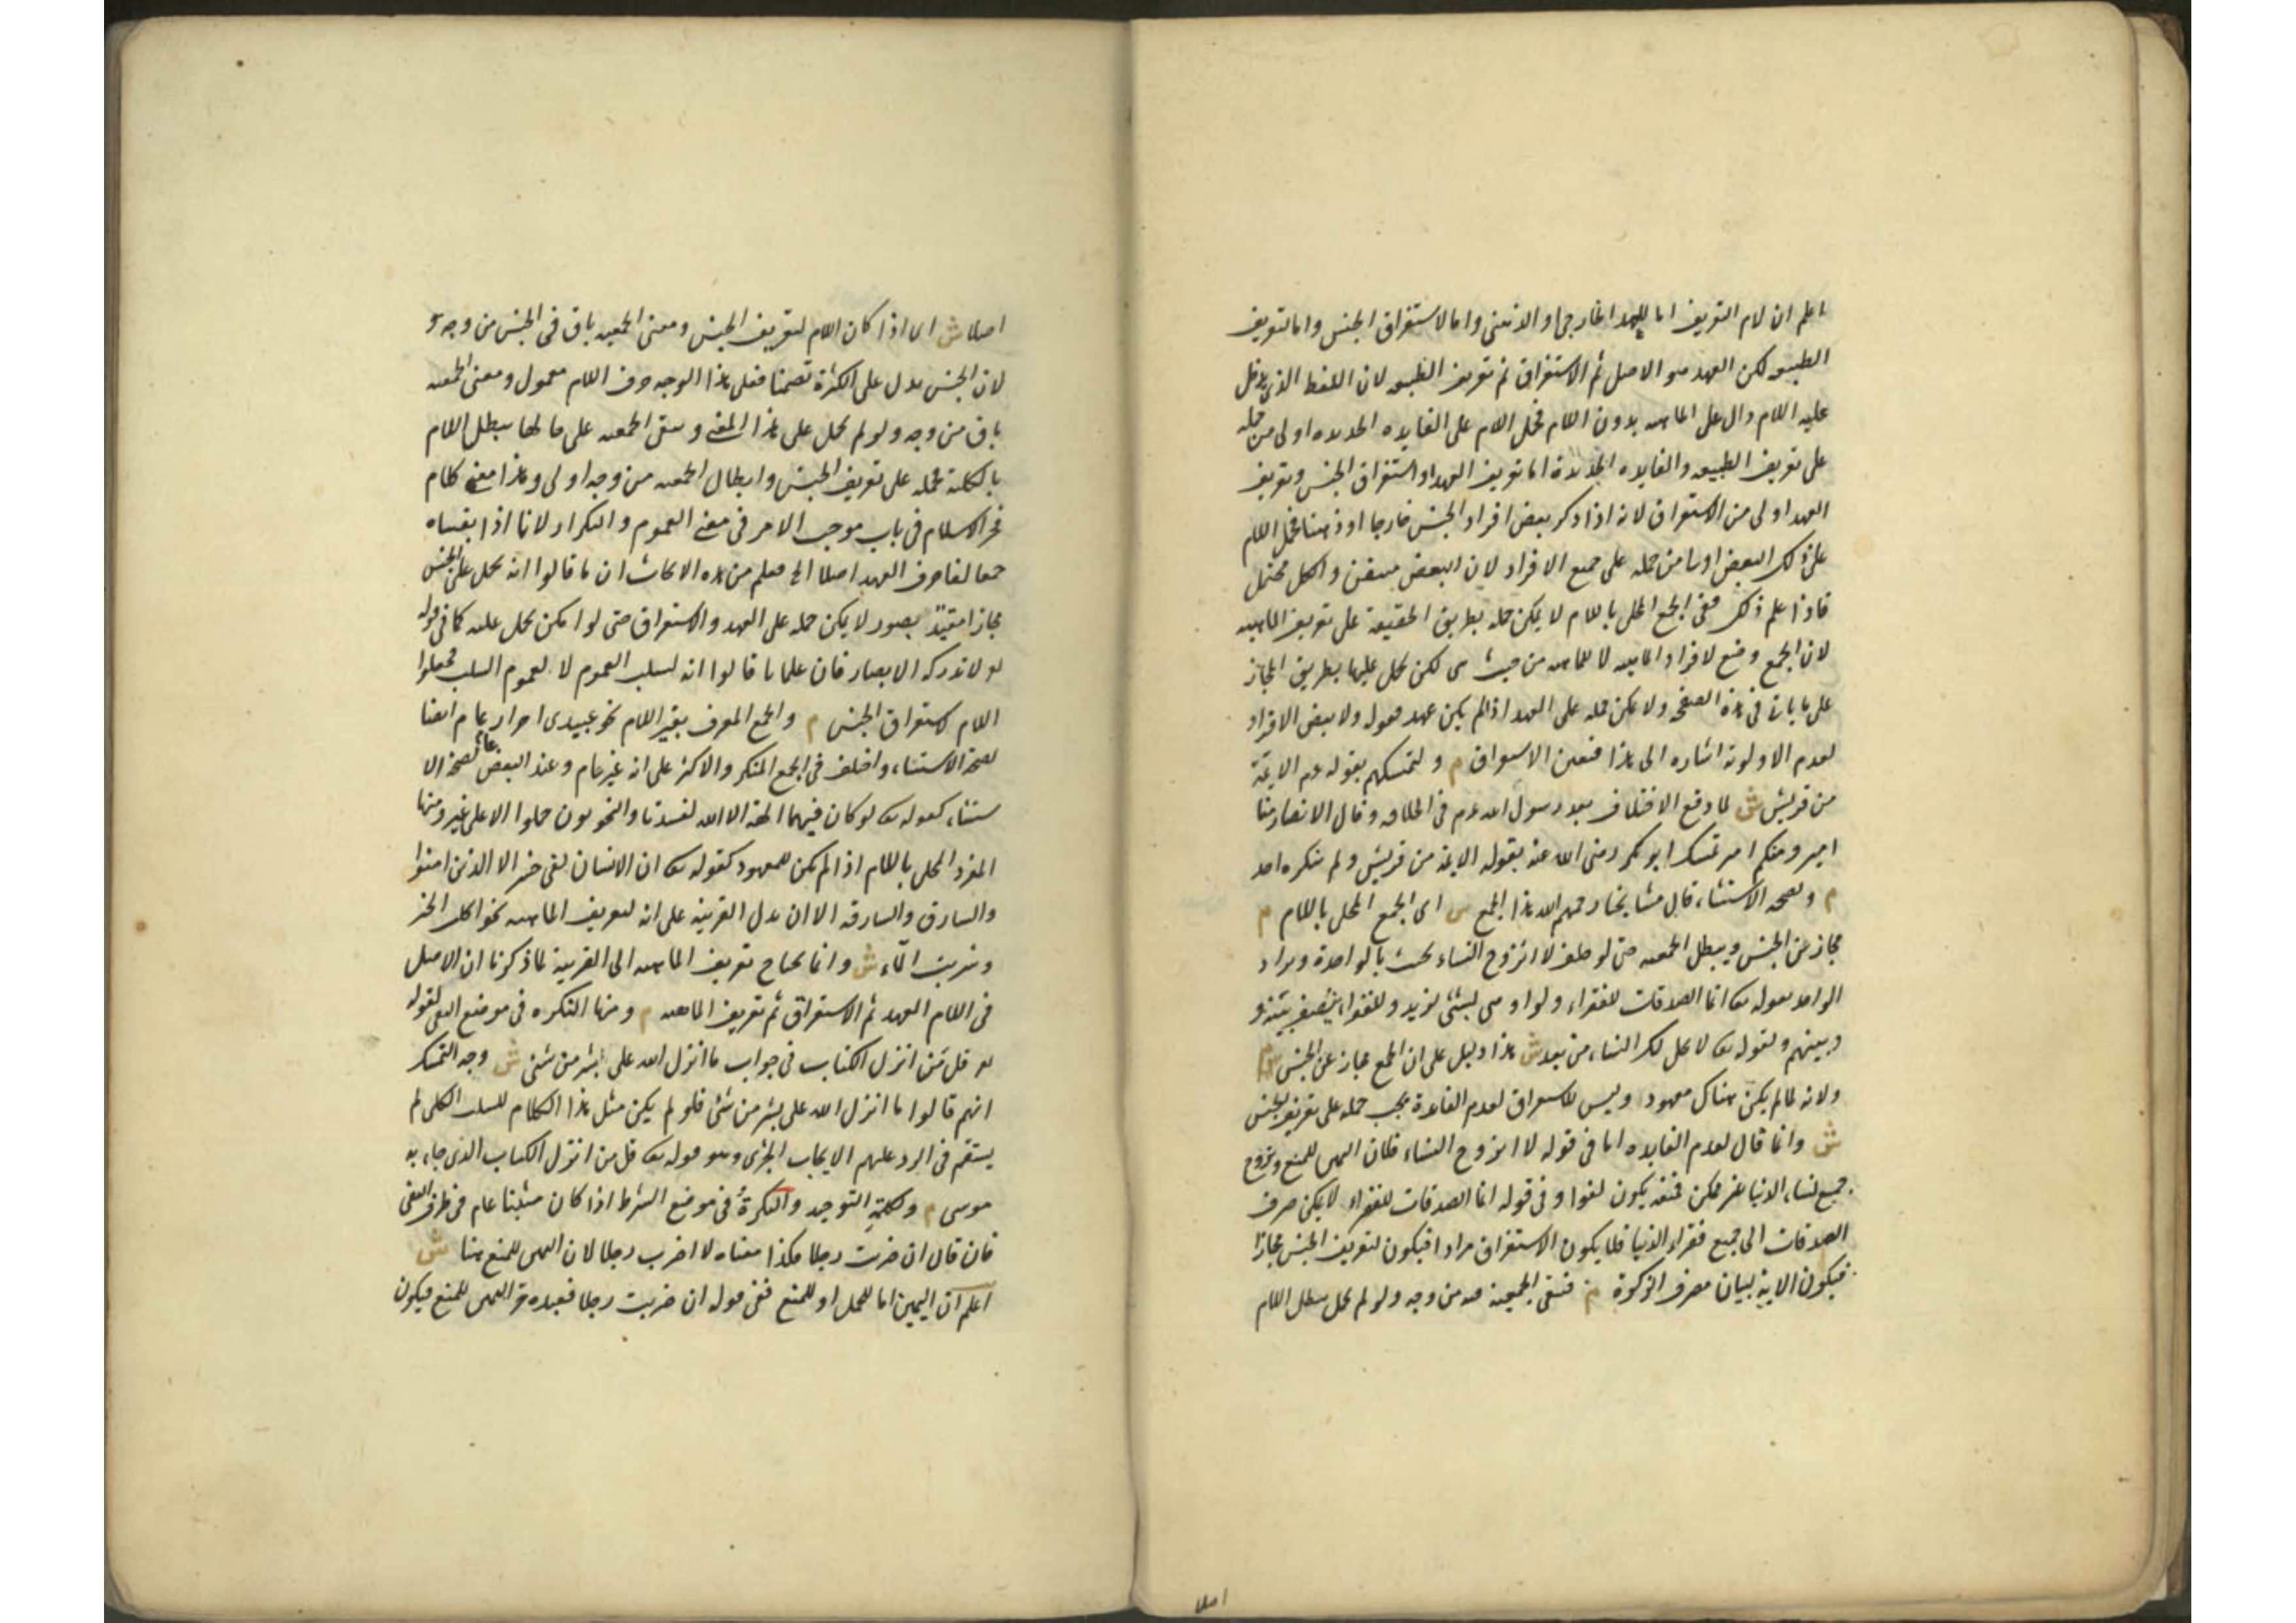 اعلم ان لام التعريف اما للعهد الخارجى او الذهنى واما لاستغراق الجنس واما لتعريف
الطبيعه لكن العهد هو الاصل ثم الاستغراق ثم تعريف الطبيعه لان اللفظ الذى يدخل
عليه اللام دال على الماهيه بدون اللام فحمل اللام على الفايده الجديده اولى من حمله
على تعريف الطبيعه والفايده الجديدة اما تعريف العهد او استغراق الجنس وتعريف
العهد اولى من الاستغراق لانه اذا ذكر بعض افراد الجنس خارجا او ذهنا فحمل اللام
على ذلك البعض اولى من حمله على جميع الافراد لان البعض متيقن والكل محتمل
فاذا علم ذلك ففى الجمع المحلى باللام لا يمكن حمله بطريق الحقيقة على تعريف الماهيه
لان الجمع وضع لافراد الماهيه لا للماهيه من حيث هى لكن يحمل عليها بطريق المجاز
على ما يات فى هذه الصفحه ولا يمكن حمله على العهد اذا لم يكن عهد فقوله ولا بعض الافراد
لعدم الاولوية اشاره الى هذا فتعين الاستغراق م ولتمسكهم بقوله عم الايمة
من قريش ش لما وقع الاختلاف بعد رسول الله عم فى الخلافه وقال الانصار منا
امير ومنكم امير تمسك ابو بكر رضى الله عنه بقوله الايمة من قريش ولم ينكره احد
م ولصحه الاستثناء قال مشايخنا رحمهم الله هذا الجمع ش اى الجمع المحلى باللام م
مجاز عن الجنس ويبطل الجمعيه حتى لو حلف لا اتزوج النساء يحنث بالواحدة ويراد
الواحد بقوله تع انما الصدقات للفقراء ولو اوصى بشئ لزيد وللفقراء ينصف بينه و
وبينهم ولقوله تع لا يحل لك النساء من بعد ش هذا دليل على ان الجمع مجاز عن الجنس م
ولانه لما لم يكن هناك معهود وليس للاستغراق لعدم الفايدة يجب حمله على تعريف الجنس
ش وانما قال لعدم الفايده اما فى قوله لا اتزوج النساء فلان اليمين للمنع وتزوج
جميع نساء الدنيا غير ممكن فمنعه يكون لغوا وفى قوله انما الصدقات للفقراء لا يمكن صرف
الصدقات الى جميع فقراء الدنيا فلا يكون الاستغراق مرادا فيكون لتعريف الجنس مجازا
فيكون الاية لبيان مصرف الزكوة م فتبقى الجمعية فيه من وجه ولو لم يحمل يبطل اللام
اصلا
اصلا ش اى اذا كان اللام لتعريف الجنس ومعنى الجمعيه باق فى الجنس من وجه
لان الجنس يدل على الكثرة تضمنا فعلى هذا الوجه حرف اللام معمول ومعنى الجمعيه
باق من وجه ولو لم يحمل على هذا المعنى وتبقى الجمعيه على حالها يبطل اللام
بالكلية فحمله على تعريف الجنس وابطال الجمعيه من وجه اولى وهذا معنى كلام
فخر الاسلام فى باب موجب الامر فى معنى العموم والتكرار لانا اذا بقيناه
جمعا لغا حرف العهد اصلا الخ فعلم من هذه الابحاث ان ما قالوا انه يحمل على الجنس
مجازا مقيد بصور لا يمكن حمله على العهد والاستغراق حتى لو امكن يحمل عليه كما فى قوله
تع لا تدركه الابصار فان علماءنا قالوا انه لسلب العموم لا لعموم السلب فجعلوا
اللام لاستغراق الجنس م والجمع المعرف بغير اللام نحو عبيدى احرار عام ايضا
لصحة الاستثناء واختلف فى الجمع المنكر والاكثر على انه غير عام وعند البعض عام لصحة الا
ستثناء كقوله تع لو كان فيهما الهة الا الله لفسدتا والنحويون حملوا الا على غير ومنها
المفرد المحلى باللام اذا لم يكن للمعهود كقوله تع ان الانسان لفى خسر الا الذين امنوا
والسارق والسارقه الا ان يدل القرينة على انه لتعريف الماهيه نحو اكلت الخبز
وشربت الماء ش وانما يحتاج تعريف الماهيه الى القرينة لما ذكرنا ان الاصل
فى اللام العهد ثم الاستغراق ثم تعريف الماهيه م ومنها النكره فى موضع النفى لقوله
تع قل من انزل الكتاب فى جواب ما انزل الله على بشر من شئ ش وجه التمسك
انهم قالوا ما انزل الله على بشر من شئ فلو لم يكن مثل هذا الكلام للسلب الكلى لم
يستقم فى الرد عليهم الايجاب الجزئى وهو قوله تع قل من انزل الكتاب الذى جاء به
موسى م وكلمة التوحيد والنكرة فى موضع الشرط اذا كان مثبتا عام فى طرف النفى
فان قال ان ضربت رجلا فكذا معناه لا اضرب رجلا لان اليمين للمنع هنا ش
اعلم ان اليمين اما للحمل او للمنع ففى قوله ان ضربت رجلا فعبده حر اليمين للمنع فيكون